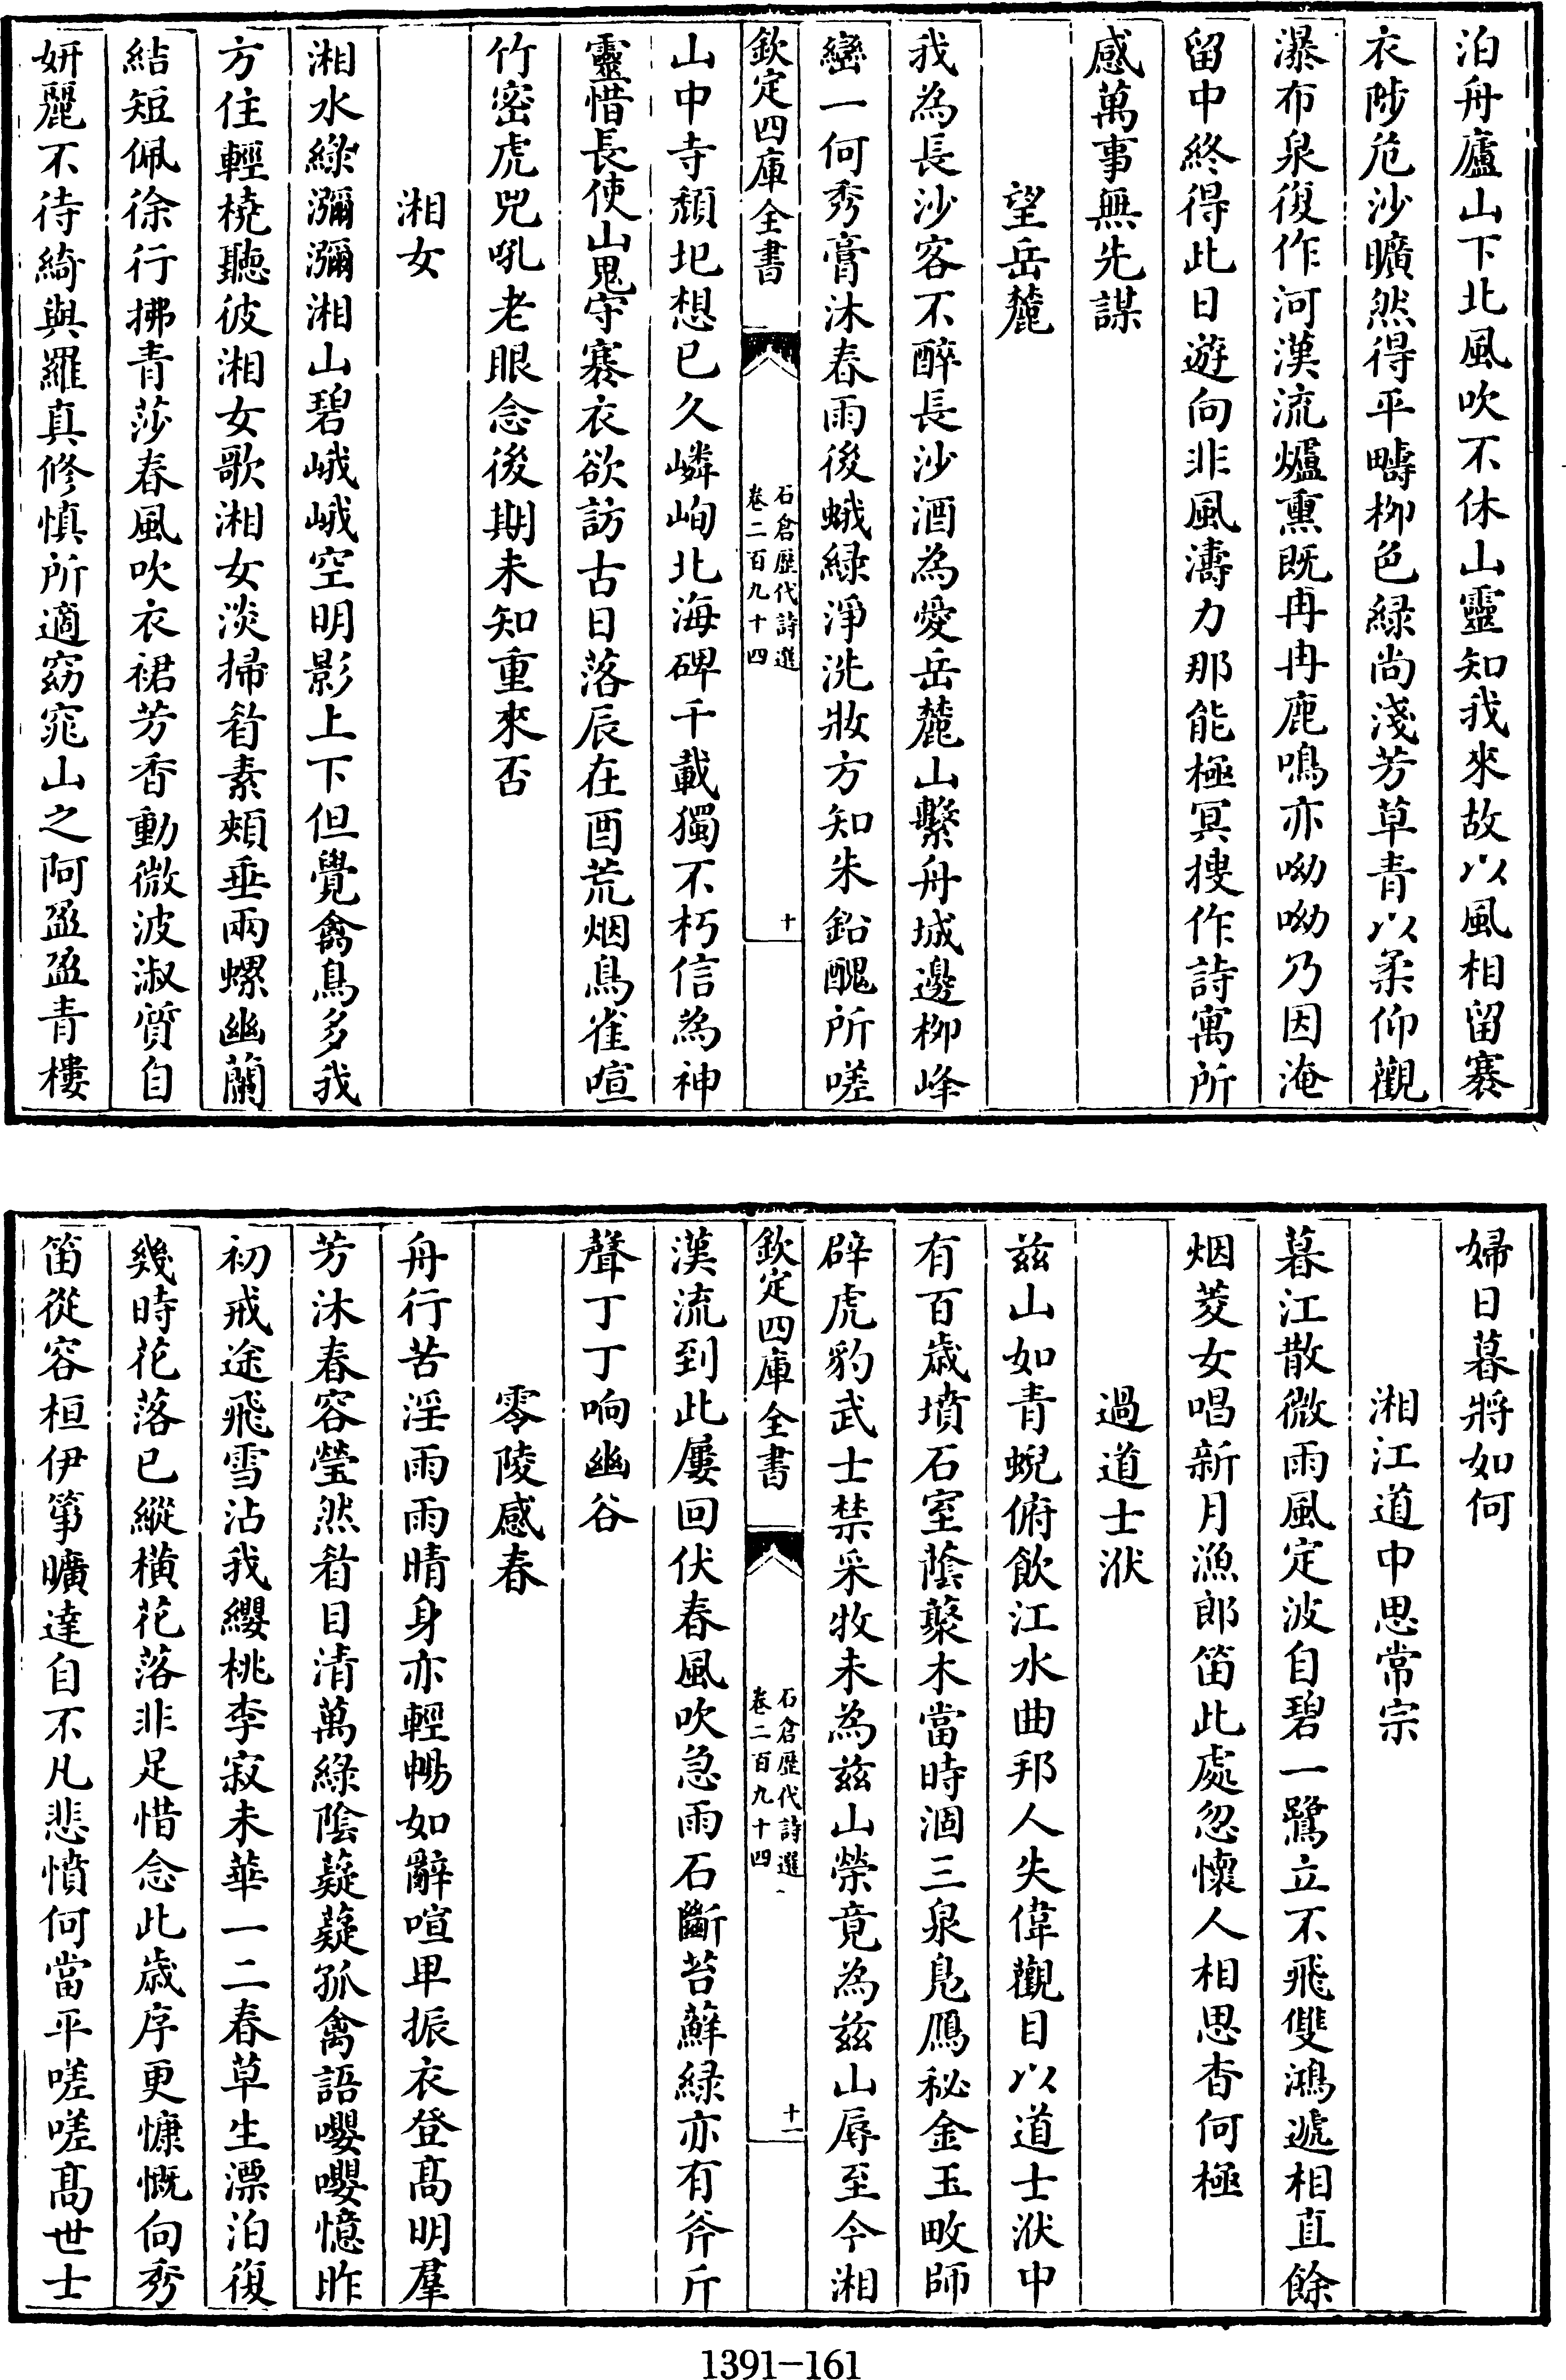 泊舟廬山下北風吹不休山靈知我來故以風相留褰
衣陟危沙曠然得平疇栁色緑尚淺芳草青以柔仰觀
瀑布泉復作河漢流爐熏既冉冉鹿鳴亦呦呦乃因淹
留中終得此日遊向非風濤力那能極冥搜作詩寓所
感萬事無先謀
望岳麓
我為長沙客不醉長沙酒為愛岳麓山繫舟城邊栁峰
巒一何秀膏沐春雨後蛾緑淨洗妝方知朱鉛醜所嗟
欽定四庫全書
石倉歴代詩選
卷二百九十四
十
山中寺頽圯想已久嶙峋北海碑千載獨不朽信為神
靈惜長使山鬼守褰衣欲訪古日落辰在酉荒烟鳥雀喧
竹密虎兕吼老眼念後期未知重來否
湘女
湘水緑瀰瀰湘山碧峨峨空明影上下但覺禽鳥多我
方住輕橈聽彼湘女歌湘女淡掃眉素頰垂兩螺幽蘭
結短佩徐行拂青莎春風吹衣裙芳香動微波淑質自
妍麗不待綺與羅真修慎所適窈窕山之阿盈盈青樓
婦日暮將如何
湘江道中思常宗
暮江散微雨風定波自碧一鷺立不飛雙鴻遞相直餘
烟菱女唱新月漁郎笛此處忽懷人相思杳何極
過道士洑
兹山如青蜺俯飲江水曲邦人失偉觀目以道士洑中
有百歳墳石室蔭藂木當時涸三泉鳬鴈秘金玉畋師
辟虎豹武士禁采牧未為兹山榮竟為兹山辱至今湘
欽定四庫全書
石倉歴代詩選
卷二百九十四
十一
漢流到此屢回伏春風吹急雨石斷苔蘚緑亦有斧斤
聲丁丁响幽谷
零陵感春
舟行苦淫雨雨晴身亦輕暢如辭喧卑振衣登髙明羣
芳沐春容瑩然眉目清萬緑陰薿薿孤禽語嚶嚶憶昨
初戒途飛雪沾我纓桃李寂未華一二春草生漂泊復
幾時花落已縱横花落非足惜念此歳序更慷慨向秀
笛從容桓伊筝曠達自不凡悲憤何當平嗟嗟髙世士
1391-161